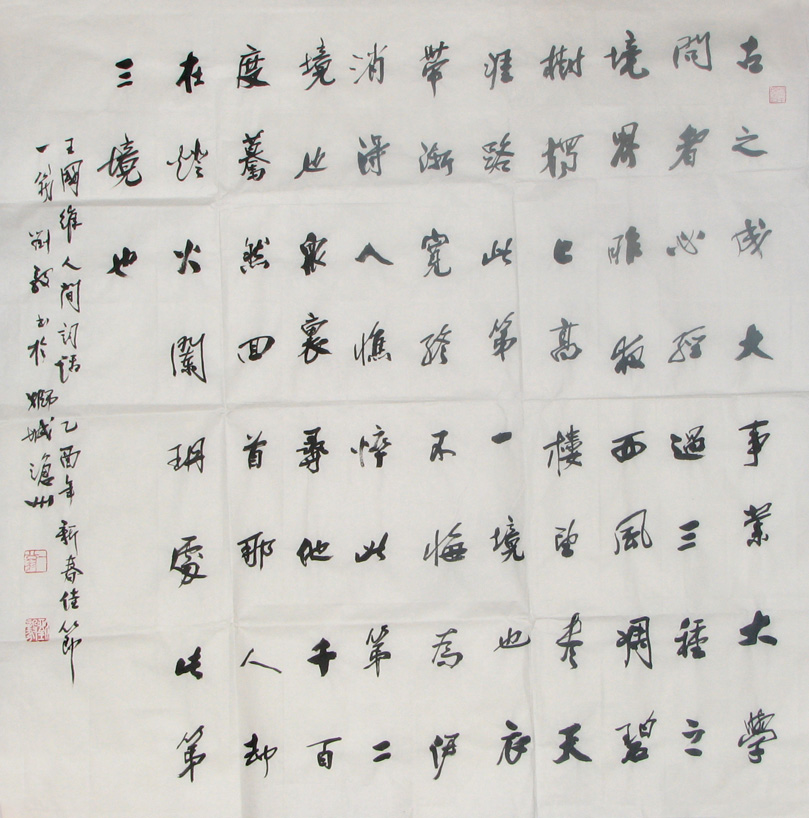 古之成大事業大學
問者必經過三種之
境界昨夜西風凋碧
樹獨上高樓望盡天
涯路此第一境也衣
帶漸寬終不悔為伊
消得人憔悴此第二
境也眾裏尋他千百
度驀然回首那人却
在燈火闌珊處此第
三境也
王國維人間詞話乙酉年新春佳節
劉毅書於獅城滄州